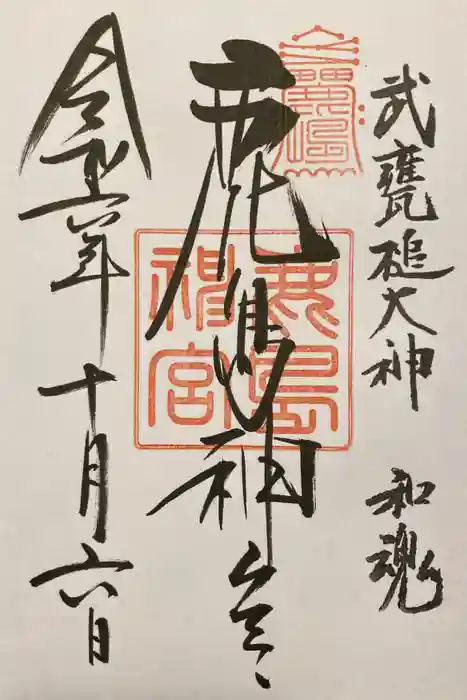 武甕槌大神 和魂
鹿島神宮
令和六年十月六日
鹿島
神宮